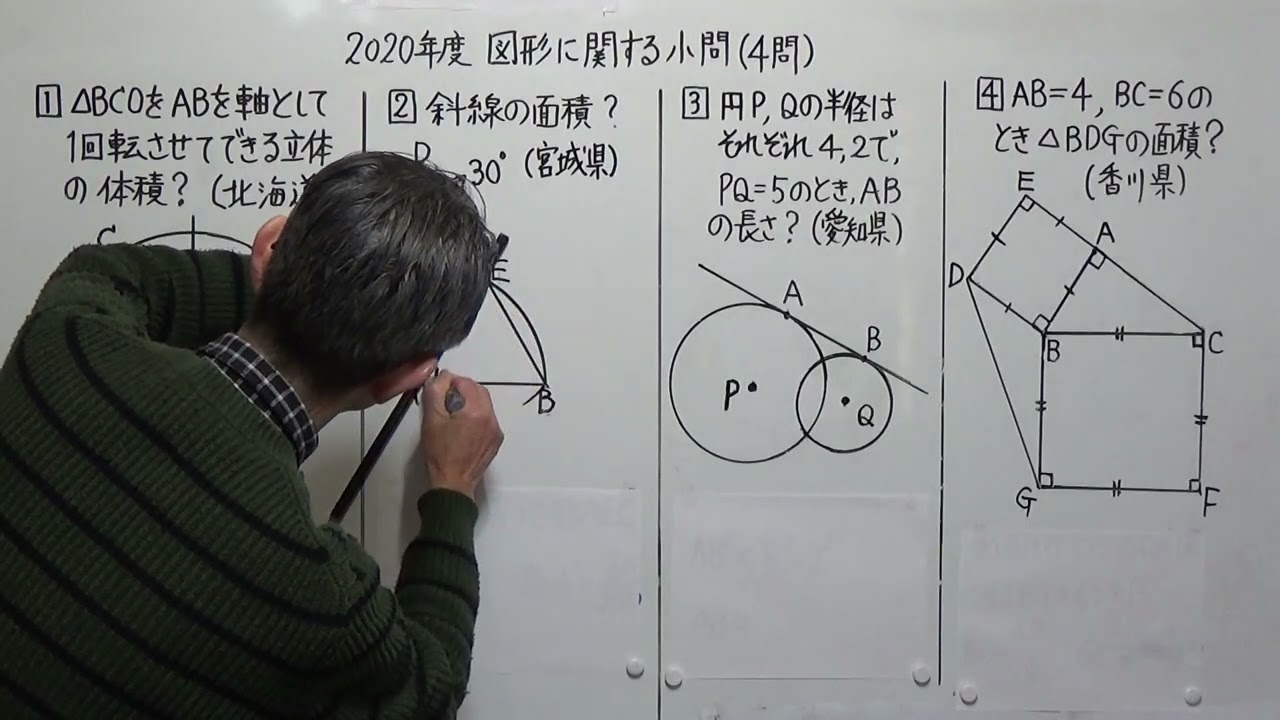 2020年度 図形に関する小問(4問)
1 △BCOをABを軸として
1回転させてできる立体
の体積？(北海道
C
2 斜線の面積？
30° (宮城県)
E
B
3 円P,Qの半径は
それぞれ4,2で,
PQ=5のとき,AB
の長さ？(愛知県)
A
B
P
Q
4 AB=4, BC=6の
とき△BDGの面積？
(香川県)
E
A
D
B
C
G
F